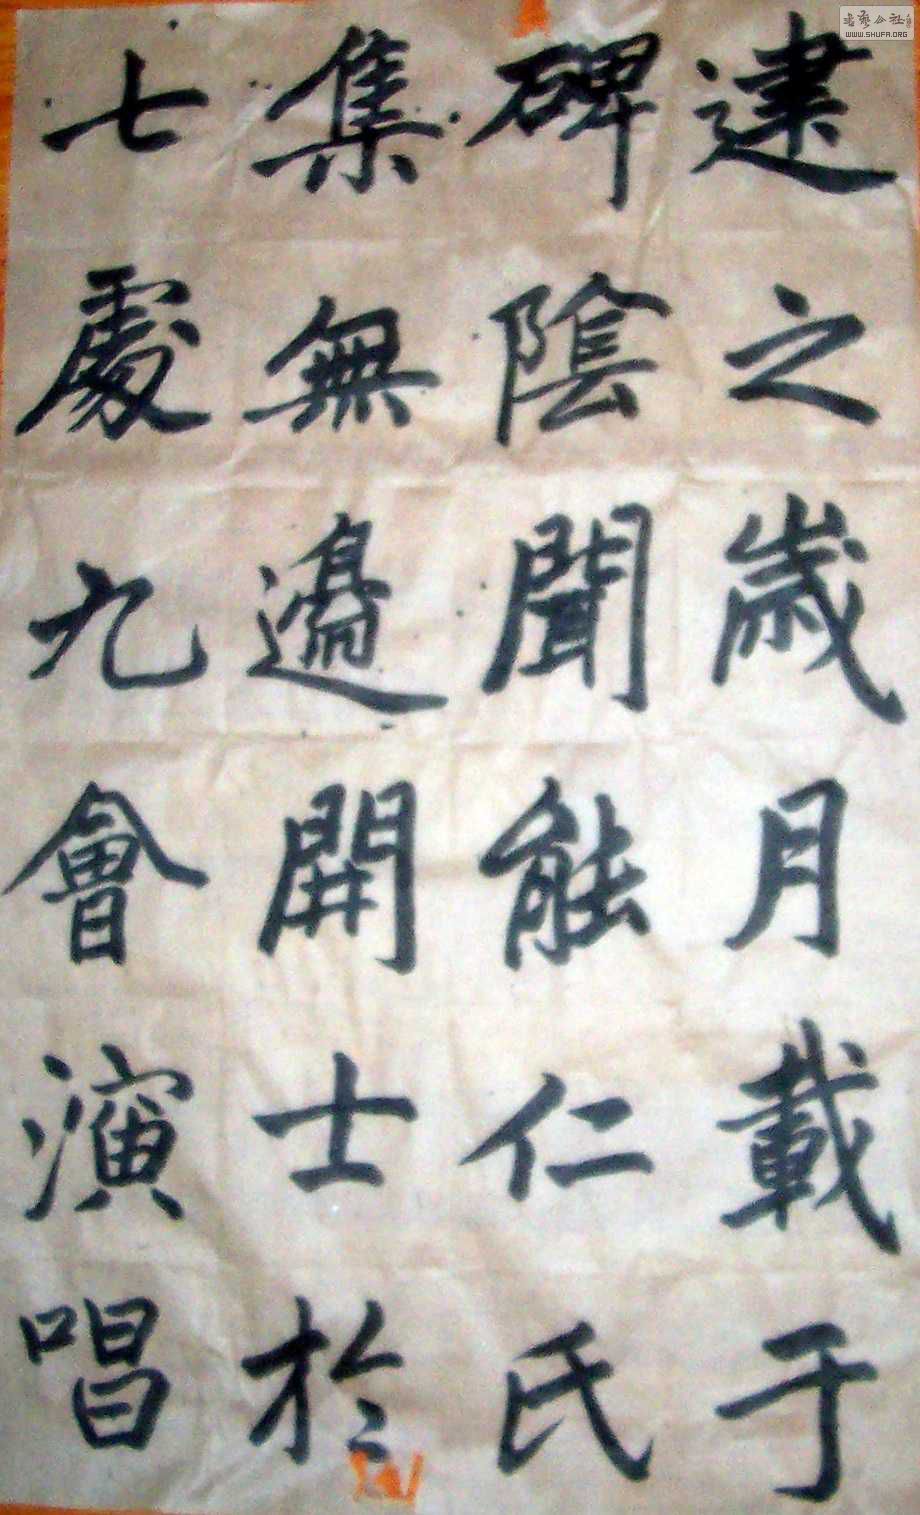 建之歲月載于
碑陰聞能仁氏
集無邊開士於
七處九會演唱
WWW.SHUFA.ORG